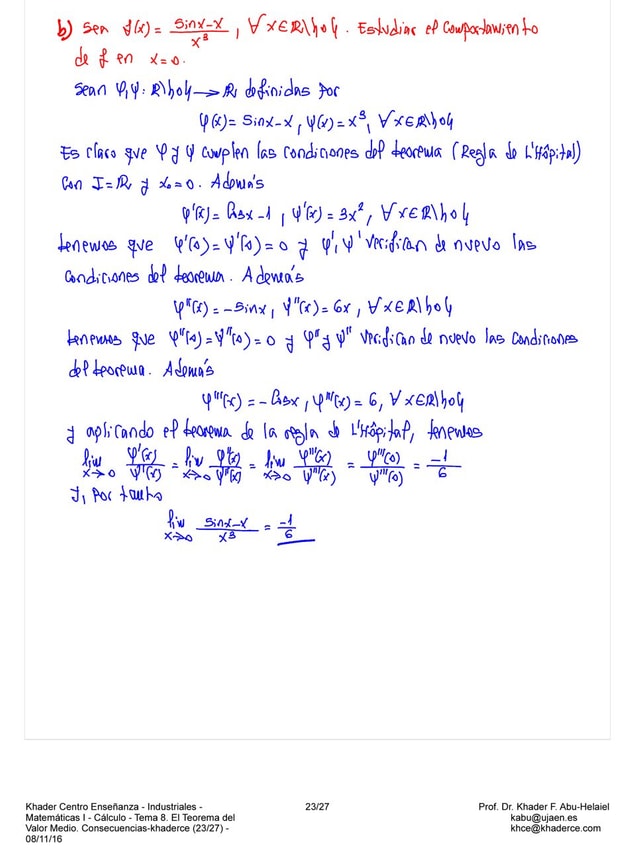 b) Sea f(x) = sinx-x/x³, ∀x∈ℝ\{0}. Estudiar el comportamiento
de f en x=0.
Sean φ,ψ: ℝ\{0} → ℝ, definidas por
φ(x) = sinx-x, ψ(x) = x³, ∀x∈ℝ\{0}
Es claro que φ y ψ cumplen las condiciones del teorema (Regla de L'Hôpital)
con I=ℝ, y x₀=0. Además
φ'(x) = cosx-1, ψ'(x) = 3x², ∀x∈ℝ\{0}
tenemos que φ'(0)=ψ'(0)=0 y φ', ψ' verifican de nuevo las
condiciones del teorema. Además
φ''(x) = -sinx, ψ''(x) = 6x, ∀x∈ℝ\{0}
tenemos que φ''(0)=ψ''(0)=0 y φ'' y ψ'' verifican de nuevo las condiciones
del teorema. Además
φ'''(x) = -cosx, ψ'''(x) = 6, ∀x∈ℝ\{0}
y aplicando el teorema de la regla de L'Hôpital, tenemos
lim x→0 φ'(x)/ψ'(x) = lim x→0 φ''(x)/ψ''(x) = lim x→0 φ'''(x)/ψ'''(x) = φ'''(0)/ψ'''(0) = -1/6
y, por tanto
lim x→0 sinx-x/x³ = -1/6
Khader Centro Enseñanza - Industriales -
Matemáticas I - Cálculo - Tema 8. El Teorema del
Valor Medio. Consecuencias-khaderce (23/27) -
08/11/16
23/27
Prof. Dr. Khader F. Abu-Helaiel
kabu@ujaen.es
khce@khaderce.com